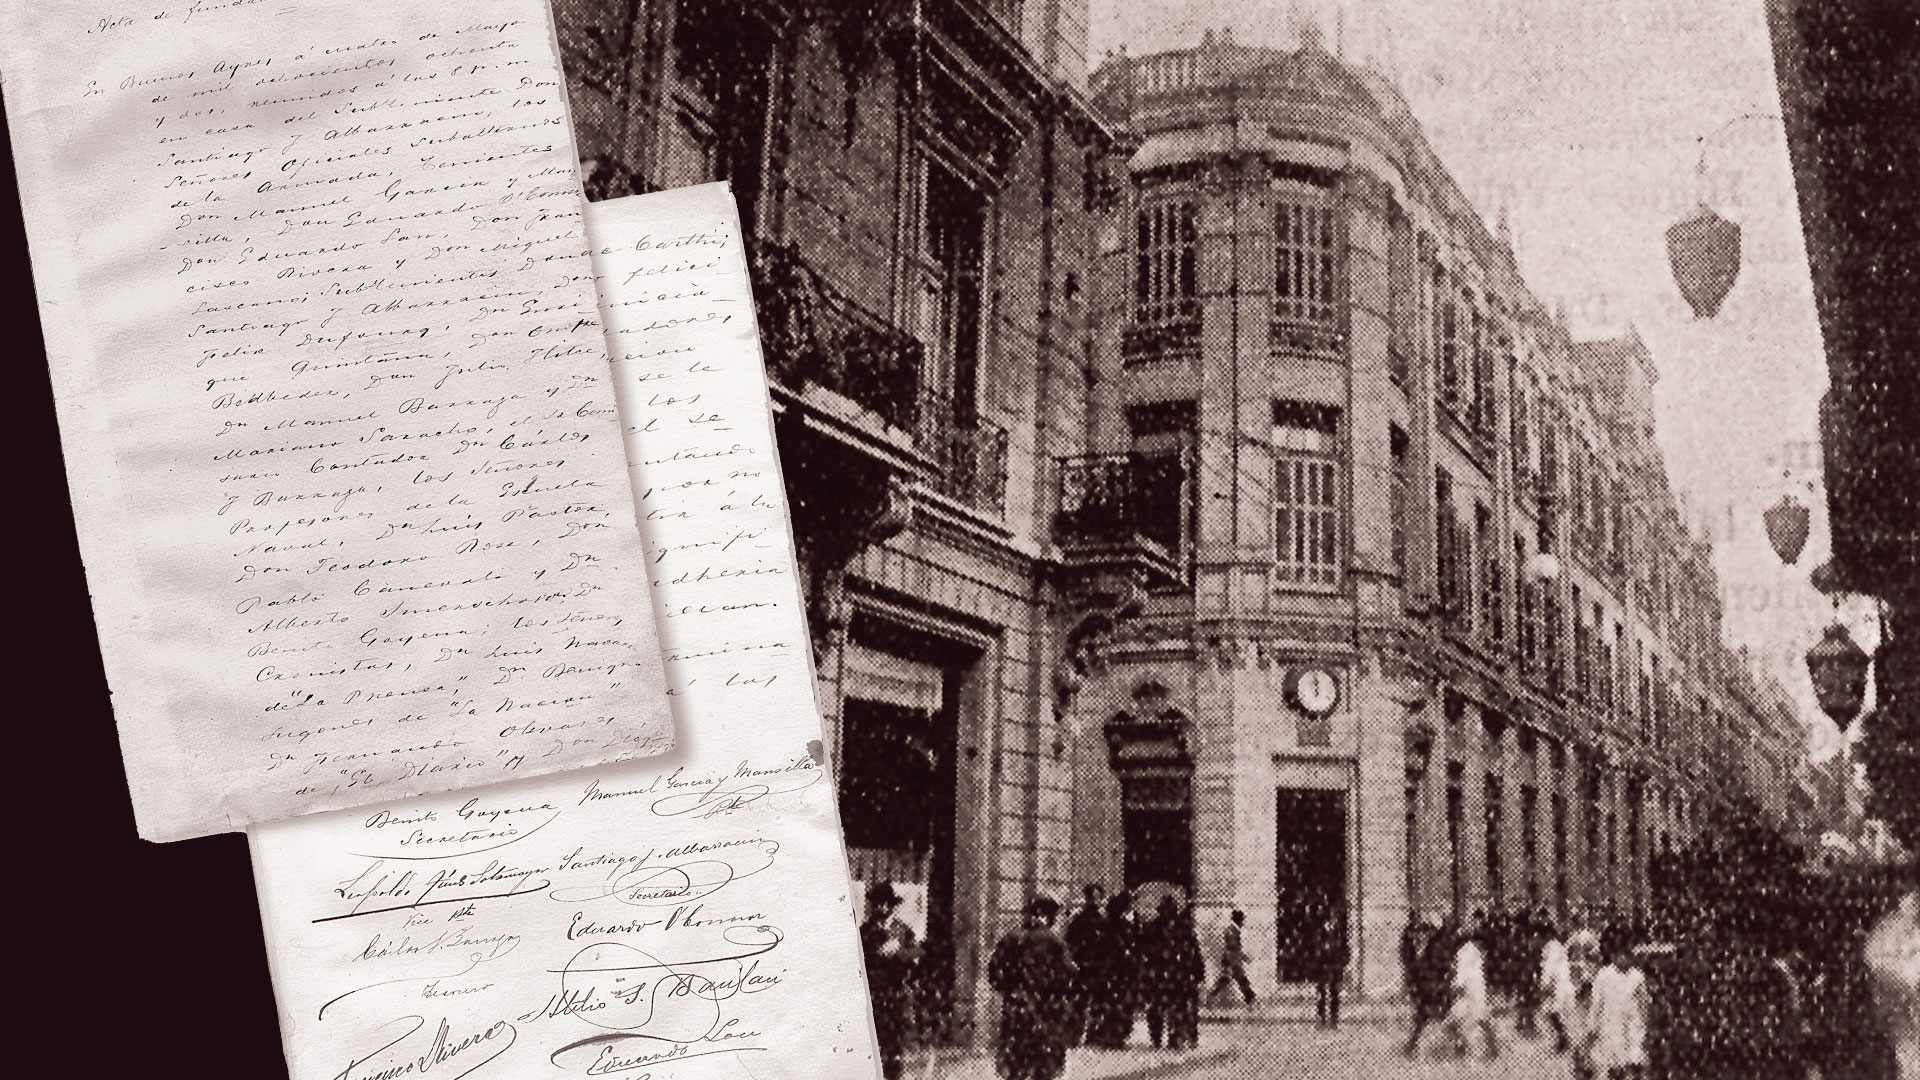 Acta de funda
En Buenos Ayres á cuatro de Mayo
de mil ochocientos ochenta
y dos, reunidos á las 8 p.m
en casa del Subteniente Don
Santiago J Albarracin, los
Señores Oficiales Subalternos
de la Armada, Tenientes
Don Manuel García y Man
silla, Don Eduardo O'Connor
Don Eduardo Lan, Don Fran
cisco Rivera y Don Miguel
Lascano; Subtenientes Don
Santiago J Albarracin, Don
Felix Dufourq, Dn Emi
que Quintana, Don Onofre
Betbeder, Don Julio Hitce,
Dn Manuel Barraza y Dn
Mariano Saracho, el Sr Comi
sario Contador Dn Cárlos
J Barraza, los Señores
Profesores de la Escuela
Naval, Dn Luis Pastor,
Don Teodoro Rose, Don
Pablo Canevali y Dn
Alberto
Benito Goyena; los Señores
Cronistas, Dn Luis Navar
de "La Prensa", Dn Benigno
Lugones de "La Nacion"
Dn Fernando Olevarez
de "El Diario" y Don Diego
c Carthi;
felici
inicia
adores,
cion
se le
los
el se
entando
por no
tirá á la
ignifi
adheria
ievan.
termina
á las
Benito Goyena
Secretario
Manuel García y Mansilla
Pte
Leopoldo Funes Solomayor
Vice Pte
Santiago J. Albarracin
Secretario
Cárlos J. Barraza
Tesorero
Eduardo O'Connor
Atilio S. Barilari
Francisco Rivera
Eduardo Lan